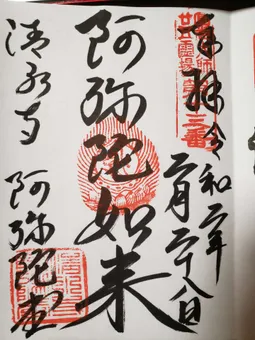 奉拝
令和二年
二月二十八日
阿弥陀如来
清水寺
阿弥陀堂
三番